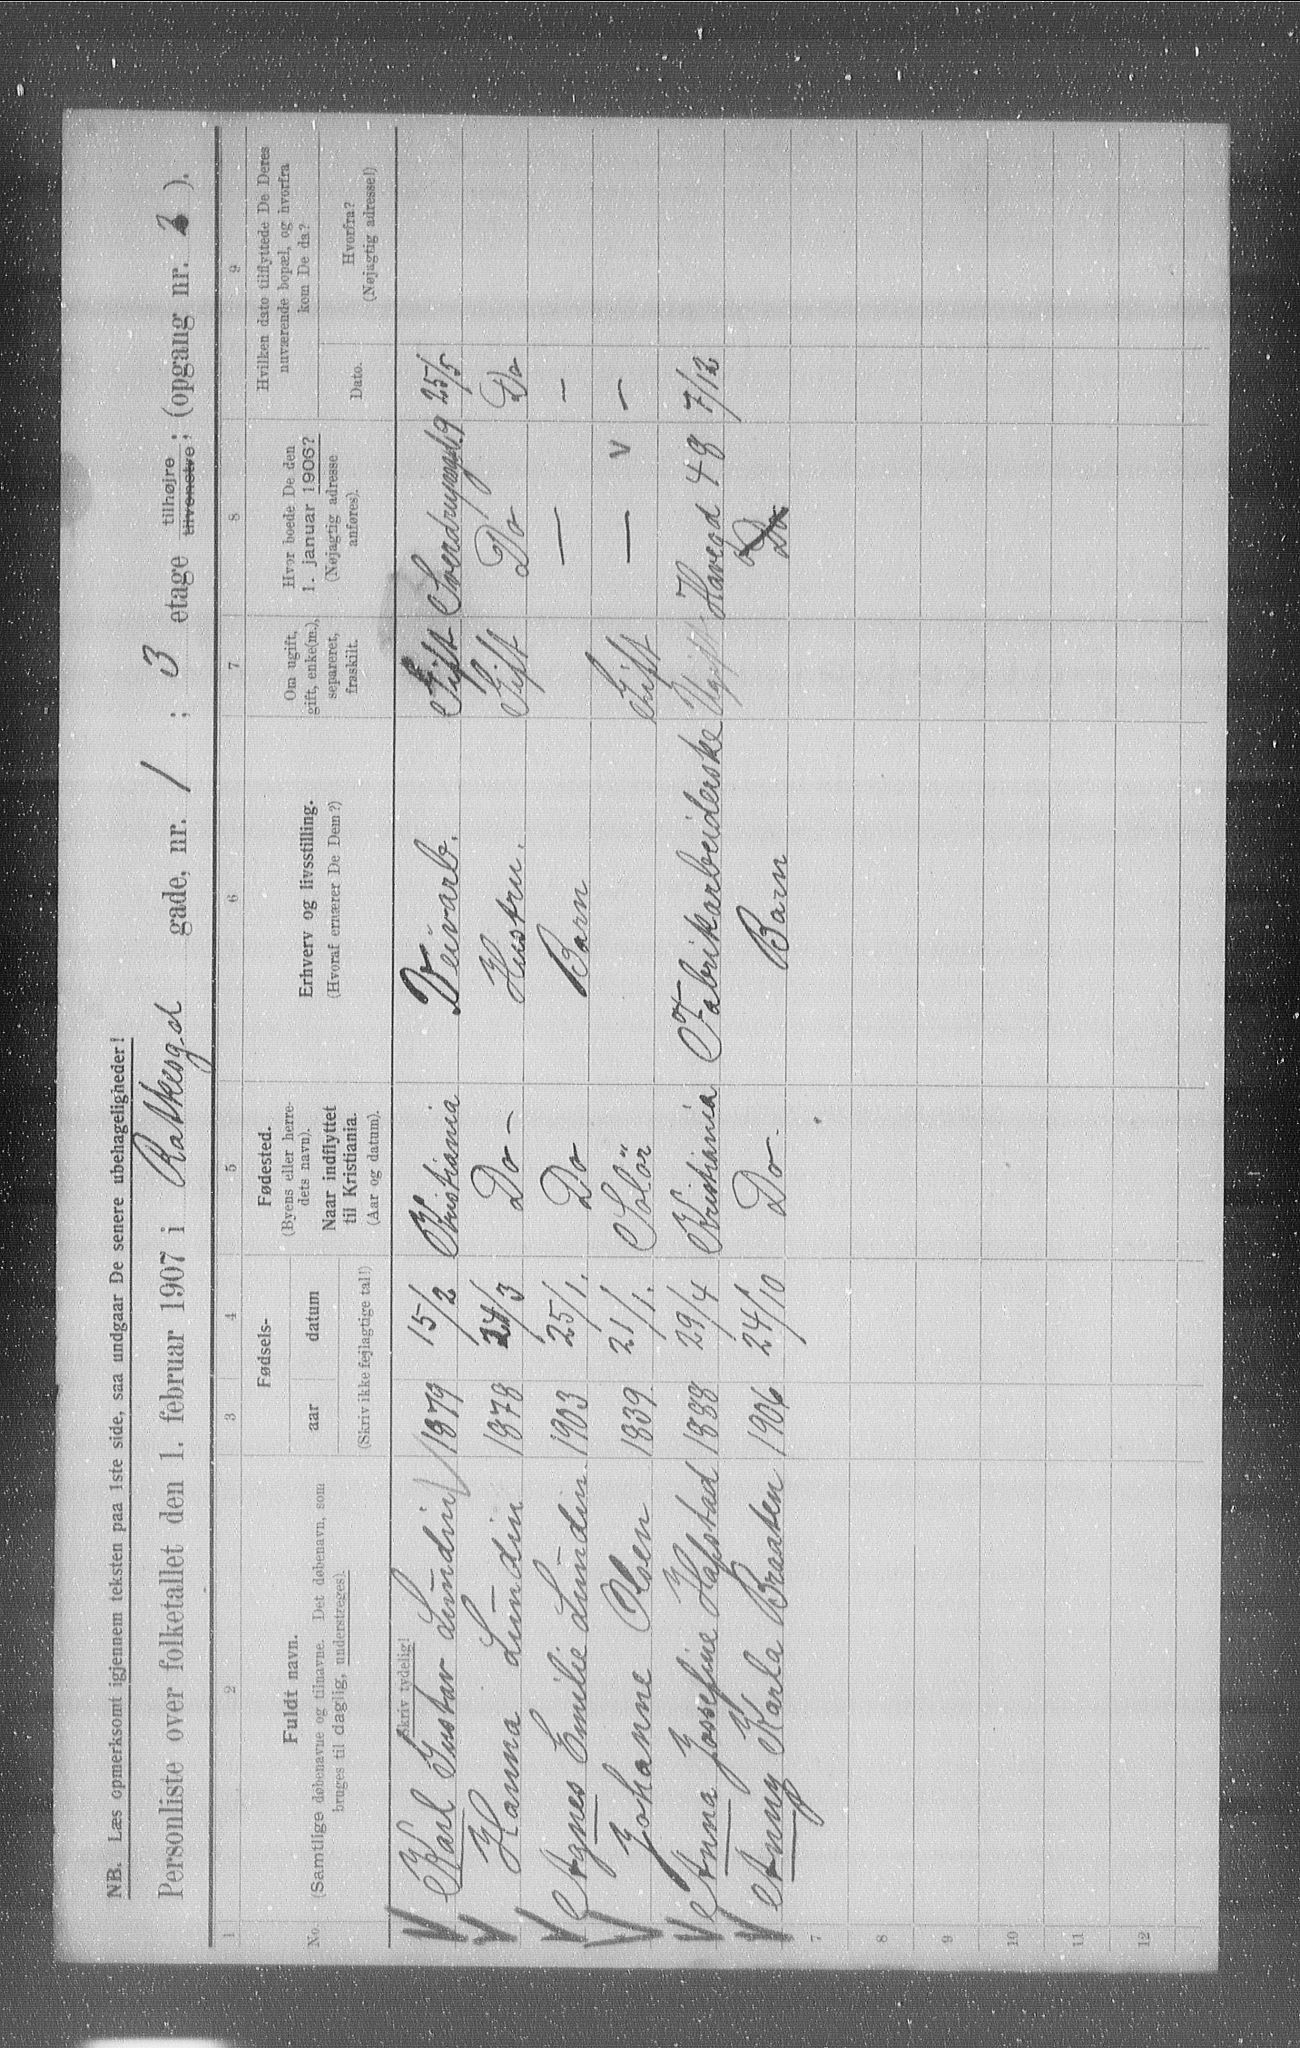 NB. Læs opmerksomt igjennem teksten paa 1ste side, saa undgaar De senere ubehageligheder!
Personliste over folketallet den 1. februar 1907 i Ratkesgd gade, nr. 1 ; 3 etage tilhøjre tilvenstre; (opgang nr. 2 ).
1 2 3 4 5 6 7 8 9
No. Fuldt navn. (Samtlige døbenavne og tilnavne. Det døbenavn, som bruges til daglig, understreges).
Fødsels- aar datum (Skriv ikke fejlagtige tal!)
Fødested. (Byens eller herredets navn). Naar indflyttet til Kristiania. (Aar og datum).
Erhverv og livsstilling. (Hvoraf ernærer De Dem?)
Om ugift, gift, enke(m.), separeret, fraskilt.
Hvor boede De den 1. januar 1906? (Nøjagtig adresse anføres).
Hvilken dato tilflyttede De Deres nuværende bopæl, og hvorfra kom De da?
Dato. Hvorfra? (Nøjagtig adresse!)
Skriv tydelig!
Karl Gustav Lundin 1879 15/2 Kristiania Gift 25/5
Hanna Lundin 1878 24/3 Do - Hustru. Gift Do Do
Agnes Emilie Lundin 1903 25/1. Do Barn — –
Johanne Olsen 1839 21/1. Solör Gift — v –
Anna Josefine Hafstad 1888 29/4 Kristiania Fabrikarbeiderske Ugift Havegd 48 7/12
Anny Karla Braaten 1906 24/10 Do. Barn Do
7
8
9
10
11
12